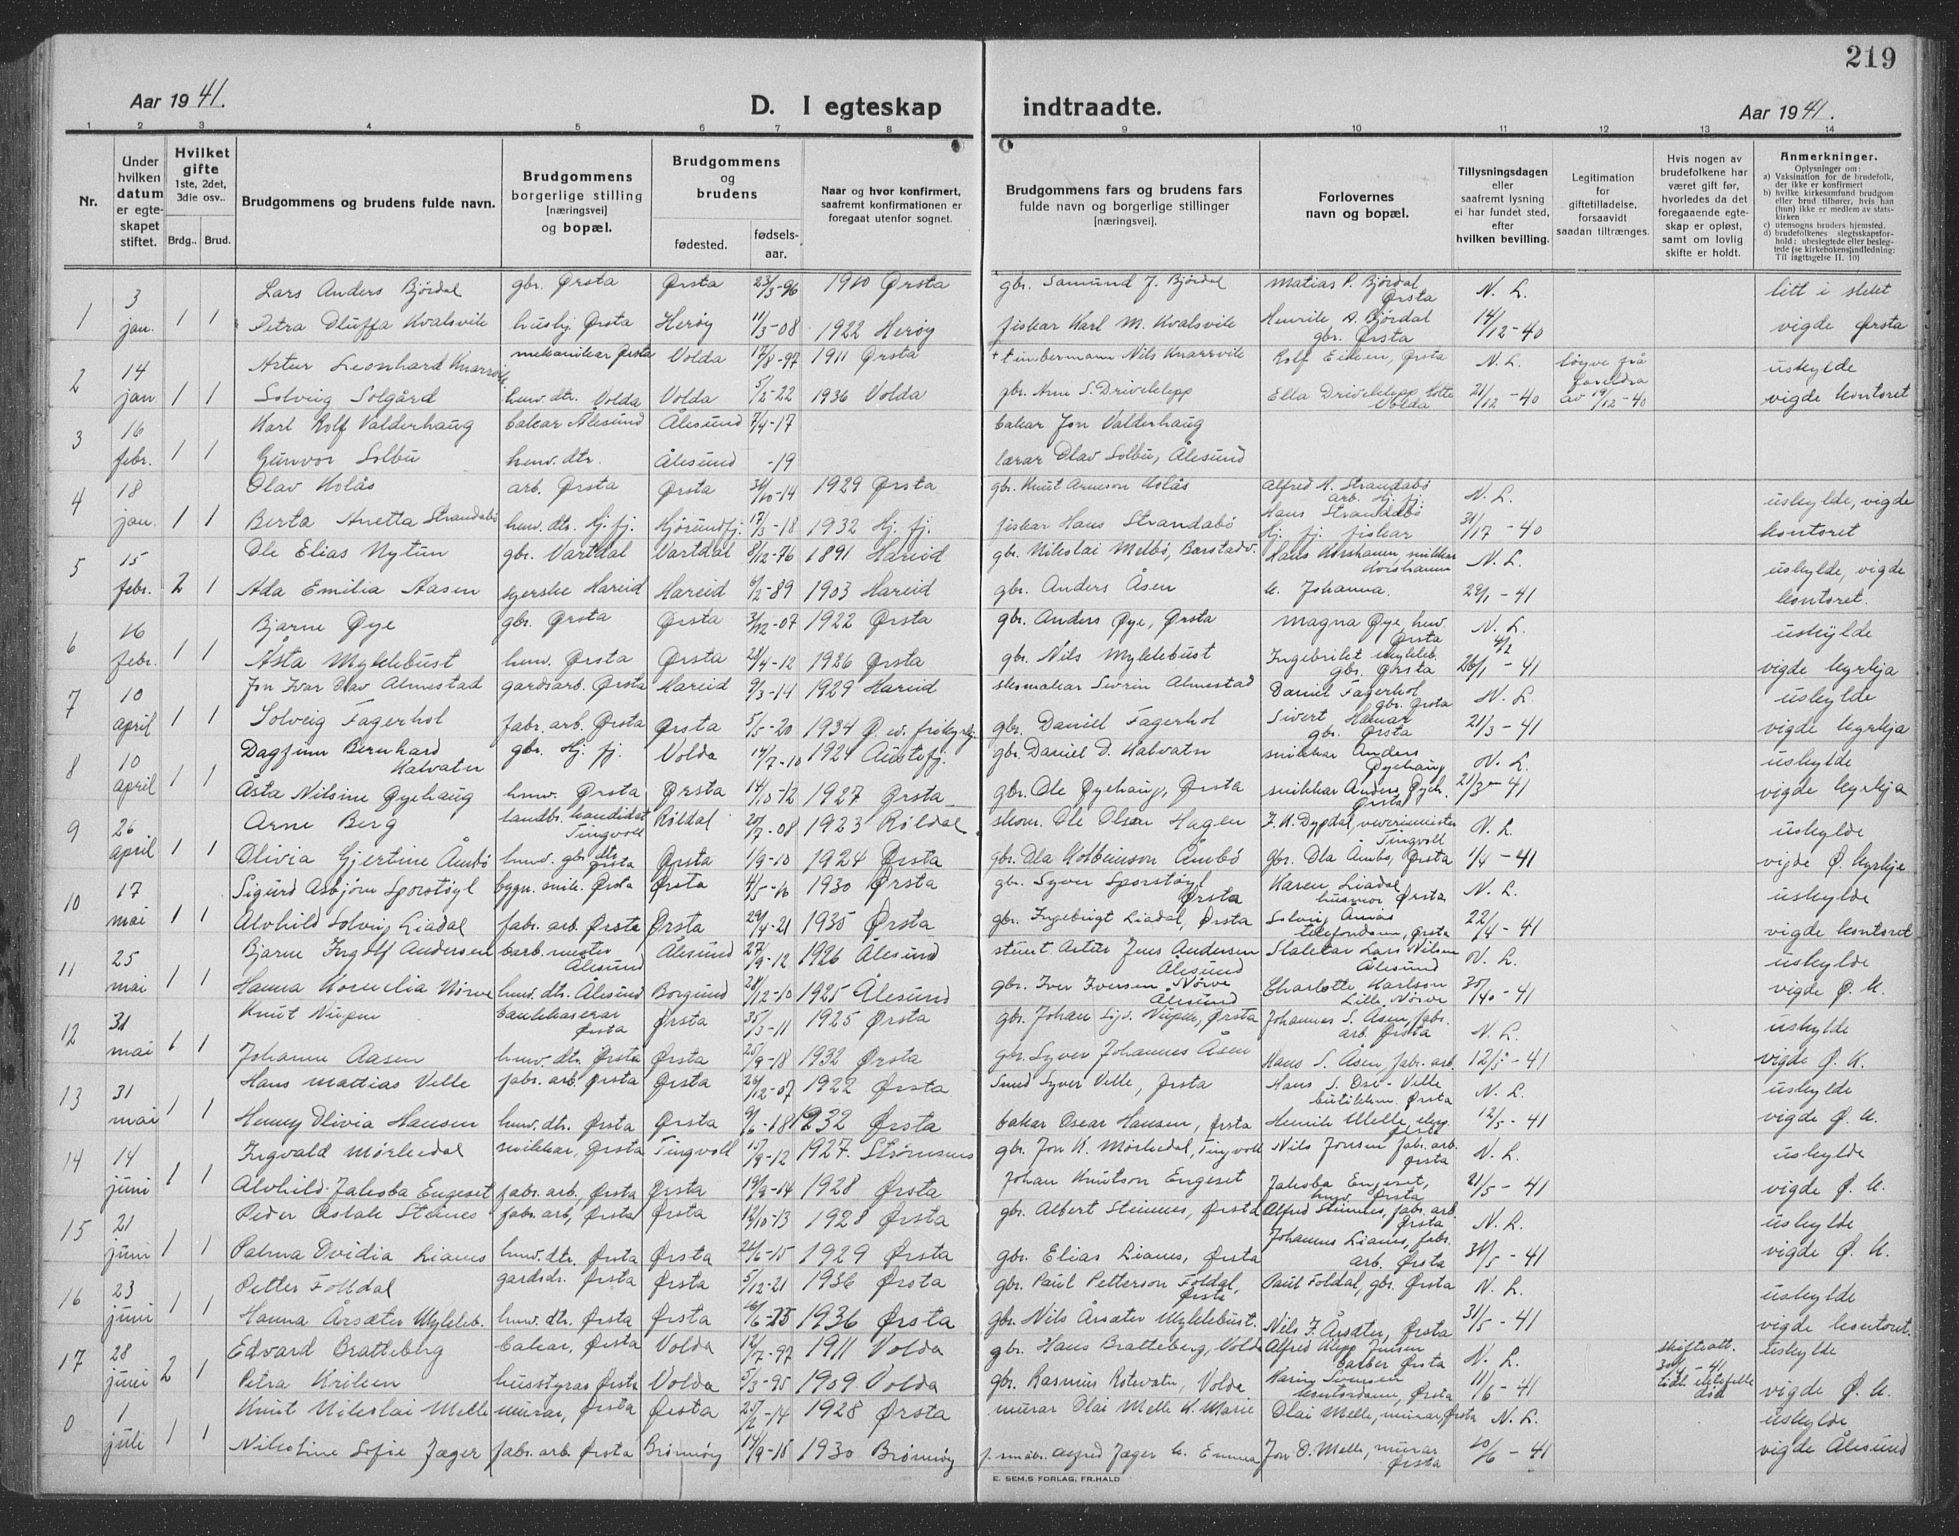 219
Aar 1941.
D. I egteskap
indtraadte.
Aar 1941.
1 2 3 4 5 6 7 8 9 10 11 12 13 14
Nr.
Under hvilken datum er egteskapet stiftet.
Hvilket gifte 1ste, 2det, 3die osv..
Brdg.. Brud.
Brudgommens og brudens fulde navn.
Brudgommens borgerlige stilling [næringsvei] og bopæl.
Brudgommens og brudens
fødested.
fødselsaar.
Naar og hvor konfirmert, saafremt konfirmationen er foregaat utenfor sognet.
Brudgommens fars og brudens fars fulde navn og borgerlige stillinger [næringsvei].
Forlovernes navn og bopæl.
Tillysningsdagen eller saafremt lysning ei har fundet sted, efter hvilken bevilling.
Legitimation for giftetilladelse, forsaavidt saadan tiltrænges.
Hvis nogen av brudefolkene har været gift før, hvorledes da det foregaaende egteskap er opløst, samt om lovlig skifte er holdt.
Anmerkninger.
Oplysninger om:
a) Vaksination for de brudefolk, der ikke er konfirmert
b) hvilke kirkesamfund brudgom eller brud tilhører, hvis han (hun) ikke er medlem av statskirken
c) utensogns bruders hjemsted.
d) brudefolkenes slegtsskapsforhold: ubeslegtede eller beslegtede (se kirkebokensindledning: Til iagttagelse II. 10)
3 Lars Anders Bjørdal gbr. Ørsta Ørsta 23/3-96 1910 Ørsta gbr. Samund J. Bjørdal Matias P. Bjørdal Ørsta N. L. litt i slekt
1 jan. 1 1 Petra Oluffa Kvalsvik hushj. Ørsta Herøy 11/3-08 1922 Herøy fiskar Karl M. Kvalsvik Henrik A. Bjørdal gbr. Ørsta 14/12-40 vigde Ørsta
14 Artur Leonhard Knarrvik mekanikar Ørsta Volda 17/8-97 1911 Ørsta + timbermann Nils Knarrvik Rolf Eiksen, Ørsta N. L. løyve frå foreldra uskylde
2 jan. 1 1 Solveig Solgård husv. dtr. Volda Volda 5/2-22 1936 Volda gbr. Arne S. Driveklepp Ella Driveklepp Volda 21/12-40 av 19/12-40 vigde kontoret
16 Karl Rolf Valderhaug bakar Ålesund Ålesund 7/4-17 bakar Jon Valderhaug
3 febr. 1 1 Gunvor Solbu husv. dtr. Ålesund -19 lærar Olav Solbu, Ålesund
18 Olav Holås arb. Ørsta Ørsta 1929 Ørsta gbr. Knut Arneson Holås Alfred H. Strandabø arb. Hj. fj. N. L. uskylde, vigde
4 jan. 1 1 Berta Anetta Strandabø husv. dtr. Hj. fj. Hjørundfj. 17/3-18 1932 Hj. fj. fiskar Hans Strandabø Hans Strandabø Hj. fj. fiskar kontoret
15 Ole Elias Nytun gbr. Vartdal Vartdal 8/12-76 1891 Hareid gbr. Nikolai Melbø, Barstadv. Hans Korshamn snikkar N. L. uskylde, vigde
5 febr. 2 1 Ada Emilia Aasen syerske Hareid Hareid 1903 Hareid gbr. Anders Åsen k. Johanna. 29/1-41 kontoret.
16 Bjarne Øye gbr. Ørsta Ørsta 3/12-07 1922 Ørsta gbr. Anders Øye, Ørsta Magna Øye husv. Ørsta N. L. uskylde
6 febr. 1 1 Åsta Myklebust husv. Ørsta Ørsta 28/4-12 1926 Ørsta gbr. Nils Myklebust Ingebrikt Mykleb. gbr. Ørsta 26/1-41 vigde kyrkja
10 Jon Ivar Olav Almestad gardsarb. Ørsta Hareid 9/3-14 1929 Hareid skomakar Sevrin Almestad Daniel Fagerhol gbr. Ørsta N. L. uskylde
7 april 1 1 Solveig Fagerhol fabr. arb. Ørsta Ørsta 5/5-20 1934 Ø. gbr. Daniel Fagerhol Sivert Hamar gbr. Ørsta 21/3-41 vigde kyrkja
10 Dagfinn Bernhard Kalvatn gbr. Hj. fj. Volda 17/7-10 1924 Austefj. gbr. Daniel D. Kalvatn snikkar Anders Øyehaug N. L. uskylde
8 april 1 1 Åsta Nilsine Øyehaug husv. Ørsta Ørsta 14/10-12 1927 Ørsta gbr. Ole Øyehaug, Ørsta snikkar Anders Øyeh. Ørsta 21/3-41 vigde kyrkja
26 Arne Berg landbr. kandidat Tingvoll Røldal 20/7-08 1923 Røldal skom. Ole Olsen Hagen Tingvoll N. L. uskylde
9 april 1 1 Olivia Gjertine Åmbø husv. gbr. dtr. Ørsta Ørsta 1/9-10 1924 Ørsta gbr. Ola Kolbeinson Åmbø gbr. Ola Åmbø, Ørsta 1/4-41 vigde Ø. kyrkje
17 Sigurd Asbjørn Sporstøyl bygn. snik. Ørsta Ørsta 4/5-16 1930 Ørsta gbr. Syver Sporstøyl Ørsta Karen Liadal husmor Ørsta N. L. uskylde
10 mai 1 1 Alvhild Solveig Liadal fabr. arb. Ørsta Ørsta 29/4-21 1935 Ørsta gbr. Ingebrigt Liadal, Ørsta telefondame, Ørsta 22/4-41 vigde kontoret
25 Bjarne Ingolf Andersen barb. mester Ålesund Ålesund 27/9-12 1926 Ålesund stuert Artur Jens Andersen Ålesund Lars Nilsen Ålesund N. L. uskylde
11 mai 1 1 Hanna Kornelia Nørve husv. dtr. Ålesund Borgund 28/12-10 1925 Ålesund gbr. Iver Iversen Nørve Ålesund Charlotte Karlsson Lille Nørve vigde Ø. K.
31 Knut Nupen bankkaserar Ørsta Ørsta 1925 Ørsta gbr. Johan Syv. Nupen, Ørsta Johannes S. Åsen, fabr. arb. Ørsta N. L. uskylde
12 mai 1 1 Johanne Aasen husv. dtr. Ørsta Ørsta 25/9-18 1932 Ørsta gbr. Syver Johannes Åsen Hans S. Åsen, fabr. arb. 12/5-41 vigde Ø. K.
31 Hans Mattias Velle fabr. arb. Ørsta Ørsta 26/12-07 1922 Ørsta Smed Syver Velle, Ørsta Hans S. Ose-Velle Ørsta N. L. uskylde
13 mai 1 1 Henny Olivia Hansen husv. dtr. Ørsta Ørsta 9/6-18 1932 Ørsta bakar Oscar Hansen, Ørsta Henrik Melle 12/5-41 vigde Ø. K.
14 Ingvald Mørkedal snikkar, Ørsta Tingvoll 15/9-12 1927. Strømsnes gbr. Jon K. Mørkedal, Tingvoll Nils Jonsen fabr. arb. Ørsta N. L. uskylde
14 juni 1 1 Alvhild Jakoba Engeset fabr. arb. Ørsta Ørsta 19/9-14 1928 Ørsta Johan Knutson Engeset Jakoba Engeset, husv. Ørsta 21/5-41 vigde Ø. K.
21 Peder Aslak Steines fabr. arb, Ørsta Ørsta 12/10-13 1928 Ørsta gbr. Albert Steinnes, Ørsta Alfred Steinnes, fabr. arb. Ørsta N. L. uskylde
15 juni 1 1 Palma Ovidia Lianes husv. dtr. Ørsta Ørsta 26/6-15 1929 Ørsta gbr. Elias Lianes, Ørsta Johannes Lianes, fabr. arb. Ørsta 31/5-41 vigde Ø. K.
23 Petter Folldal gardsdr. Ørsta Ørsta 5/12-21 1936 Ørsta gbr. Paul Petterson Foldal, Ørsta Paul Foldal, gbr. Ørsta N. L. uskylde
16 juni 1 1 Hanna Årsæter Mykleb. husv. dtr. Ørsta Ørsta 1936 Ørsta gbr. Nils Årsæter Myklebust. Nils F. Årsæter, Ørsta 31/5-41 vigde kontoret.
28 Edvard Bratteberg bakar, Ørsta Volda 12/7-97 1911 Volda gbr. Hans Bratteberg, Volda Alfred Klepp Jensen barber Ørsta N. L. skifteatt. uskylde
17 juni 2 1 Petra Eriksen husstyras Ørsta Volda 5/3-95 1909 Volda gbr. Rasmus Rotevatn, Volda Karin Svensen kontordame, Ørsta 11/6-41 tidl. ektefelle død vigde Ø. K.
1 Knut Nikolai Melle murar, Ørsta Ørsta 25/2-14 1928 Ørsta murar Olai Melle k. Marie Olai Melle, murar, Ørsta N. L. uskylde
0 juli 1 1 Nikoline Sofie Jæger fabr. arb. Ørsta Brønnøy 1930 Brønnøy Alfred Jæger k. Emma Jon O. Melle, murar Ørsta 20/6-41 vigde Ålesund
E. SEM.S FORLAG, FR.HALD